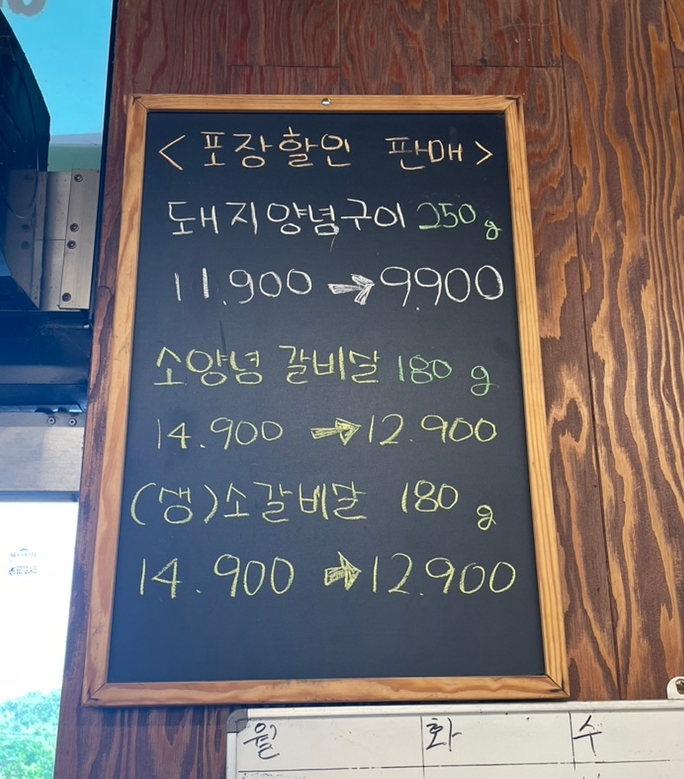 <포장할인 판매>
돼지양념구이 250g
11.900 → 9.900
소양념 갈비살 180g
14.900 → 12.900
(생)소갈비살 180g
14.900 → 12.900
월 화 수